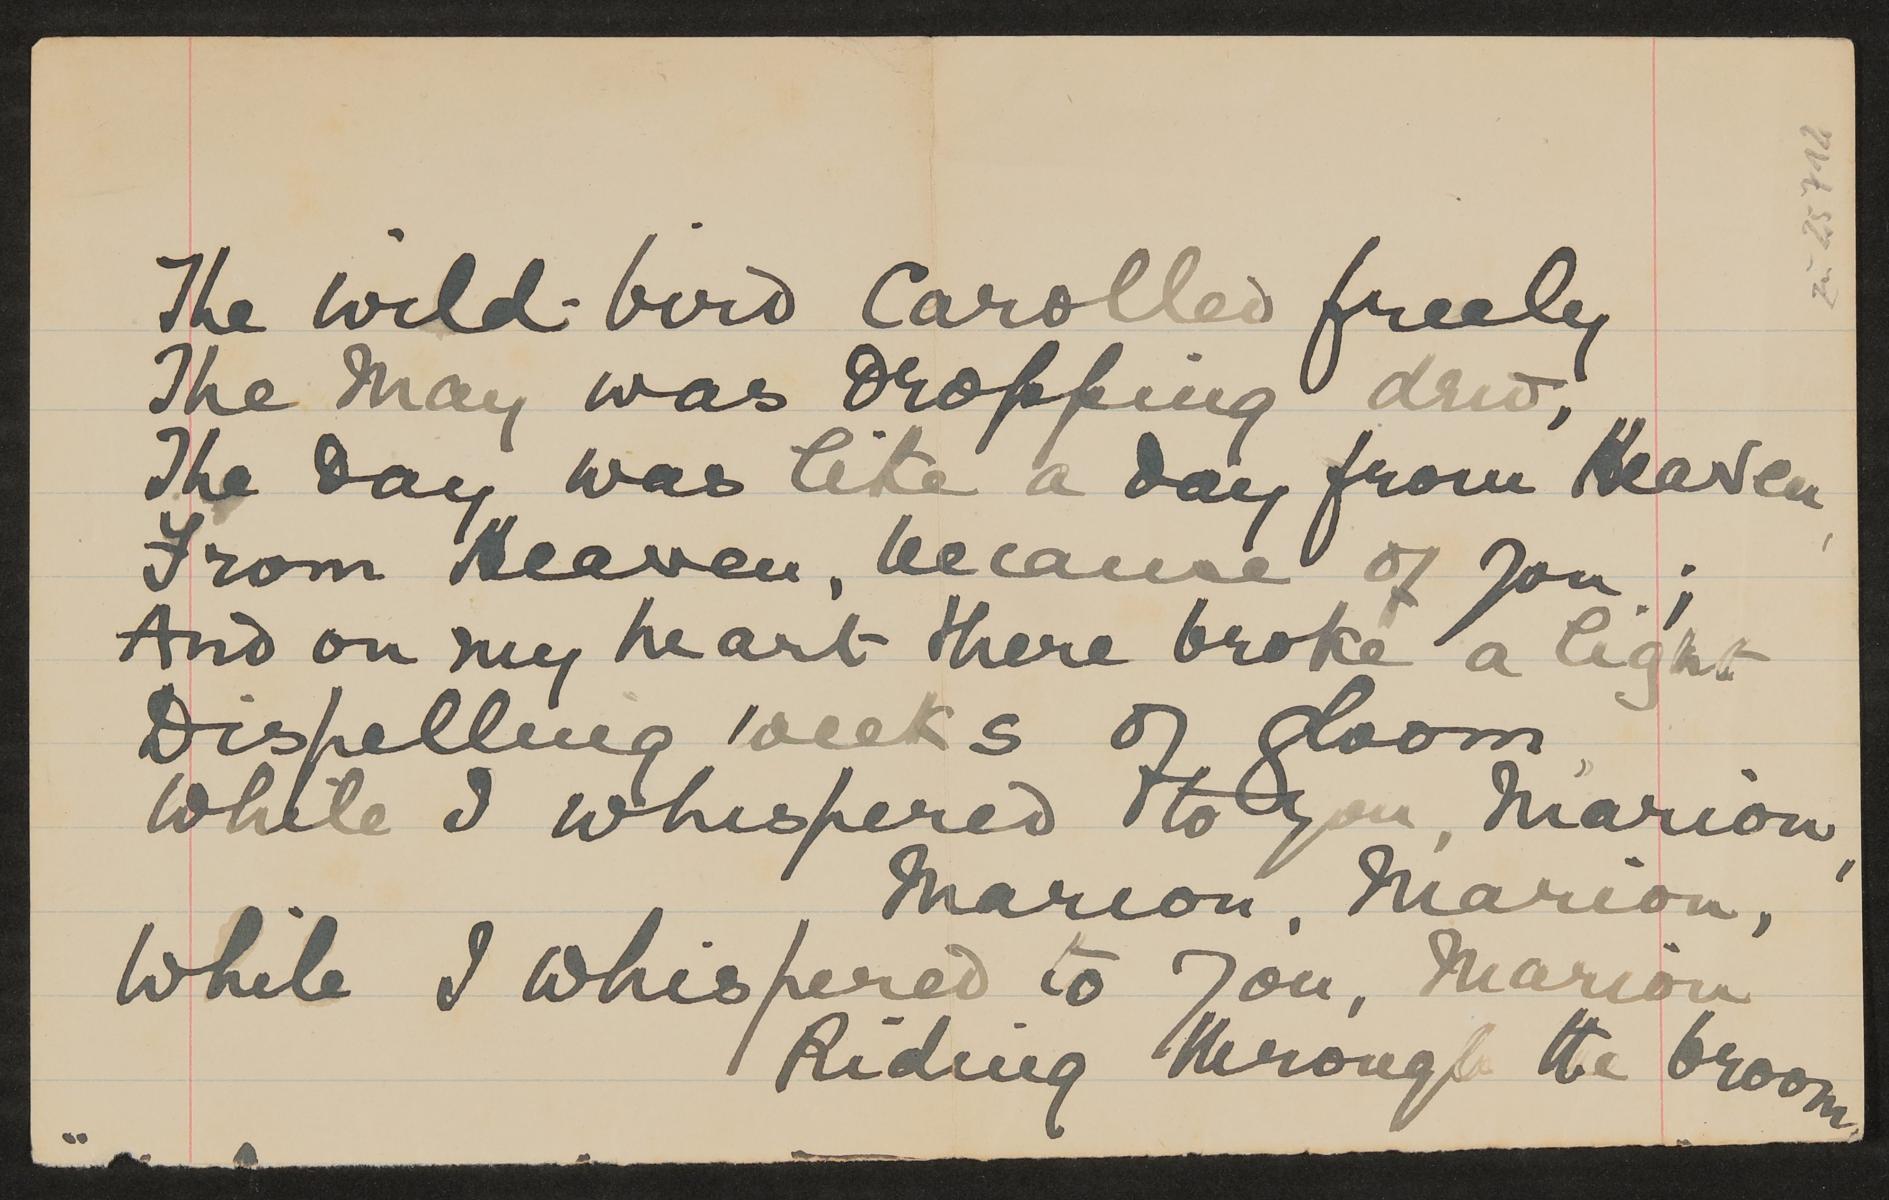 The wild-bird Carolled freely
The May was Dropping dew,
The Day was like a Day from Heaven,
From Heaven, because of you;
And on my heart there broke a light
Dispelling weeks of gloom,
While I whispered to you, Marion,
Marion, Marion,
While I whispered to you, Marion
Riding through the broom.
zu 25742